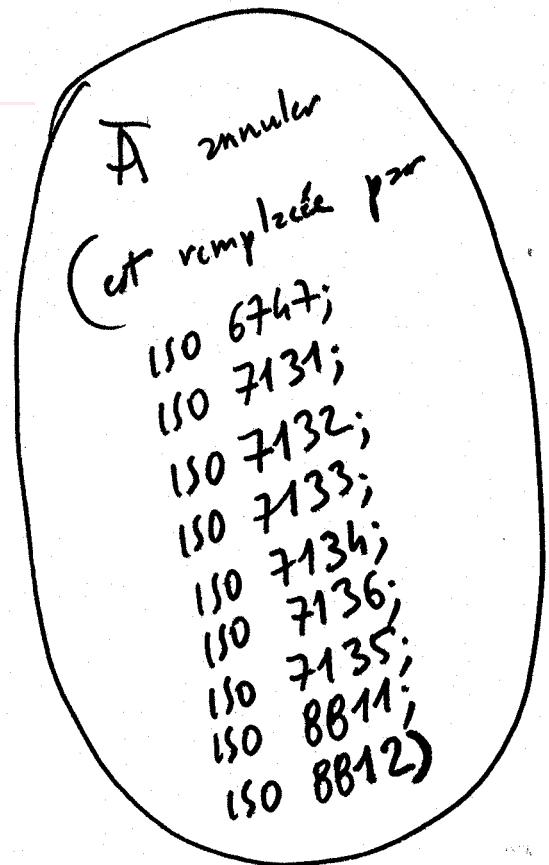 À annuler
(est remplacée par
ISO 6747;
ISO 7131;
ISO 7132;
ISO 7133;
ISO 7134;
ISO 7136;
ISO 7135;
ISO 8811;
ISO 8812)